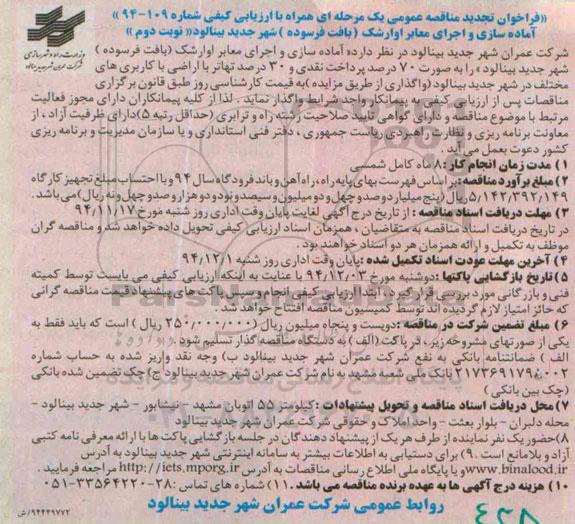 «فراخوان تجدید مناقصه عمومی یک مرحله ای همراه با ارزیابی کیفی شماره ۱۰۹-۹۴»
آماده سازی و اجرای معابر اوارشک (بافت فرسوده) شهر جدید بینالود« نوبت دوم »
وزارت راه و شهرسازی
شرکت عمران شهر جدید بینالود
شرکت عمران شهر جدید بینالود در نظر دارد« آماده سازی و اجرای معابر اوارشک (بافت فرسوده)
شهر جدید بینالود» را به صورت ۷۰ درصد پرداخت نقدی و ۳۰ درصد تهاتر با اراضی با کاربری های
مختلف در شهر جدید بینالود (واگذاری از طریق مزایده) به قیمت کارشناسی روز طبق قانون برگزاری
مناقصات پس از ارزیابی کیفی به پیمانکار واجد شرایط واگذار نماید . لذا از کلیه پیمانکاران دارای مجوز فعالیت
مرتبط با موضوع مناقصه و دارای گواهی تایید صلاحیت رشته راه و ترابری (حداقل رتبه ۵) دارای ظرفیت آزاد ، از
معاونت برنامه ریزی و نظارت راهبردی ریاست جمهوری ، دفتر فنی استانداری و یا سازمان مدیریت و برنامه ریزی
کشور دعوت بعمل می آید .
۱) مدت زمان انجام کار : ۸ ماه کامل شمسی
۲) مبلغ برآورد مناقصه: براساس فهرست بهای پایه راه ، راه آهن و باند فرودگاه سال ۹۴ و با احتساب مبلغ تجهیز کارگاه
۵/۱۴۲/۳۹۲/۱۴۹ ریال (پنج میلیارد و صدو چهل و دو میلیون و سیصد و نود و دو هزار و صد و چهل و نه ریال) می باشد .
۳) مهلت دریافت اسناد مناقصه : از تاریخ درج آگهی لغایت پایان وقت اداری روز شنبه مورخ ۹۴/۱۱/۱۷
در تاریخ دریافت اسناد مناقصه به متقاضیان ، همزمان اسناد ارزیابی کیفی تحویل داده خواهد شد و مناقصه گران
موظف به تکمیل و ارائه همزمان هر دو اسناد خواهند بود .
۴) آخرین مهلت عودت اسناد تکمیل شده : پایان وقت اداری روز شنبه ۹۴/۱۲/۱
۵) تاریخ بازگشایی پاکتها : دوشنبه مورخ ۹۴/۱۲/۰۳ با عنایت به اینکه ارزیابی کیفی می بایست توسط کمیته
فنی و بازرگانی مورد بررسی قرار گیرد، ابتدا ارزیابی کیفی انجام و سپس پاکت های پیشنهاد قیمت مناقصه گرانی
که حائز امتیاز لازم گردیده اند توسط کمیسیون مناقصه افتتاح خواهد شد .
۶) مبلغ تضمین شرکت در مناقصه : دویست و پنجاه میلیون ریال (۲۵۰/۰۰۰/۰۰۰ ریال) است که باید فقط به
یکی از صورتهای مشروحه زیر، در پاکت (الف) به دستگاه مناقصه گذار تسلیم شود
الف) ضمانتنامه بانکی به نفع شرکت عمران شهر جدید بینالود ب) وجه نقد واریز شده به حساب شماره
۲۱۷۳۶۹۱۷۹۸۰۰۲ بانک ملی شعبه مشهد به نام شرکت عمران شهر جدید بینالود ج) چک تضمین شده بانکی
(چک بین بانکی)
۷) محل دریافت اسناد مناقصه و تحویل پیشنهادات : کیلومتر ۵۵ اتوبان مشهد - نیشابور - شهر جدید بینالود -
محله دلبران - بلوار بعثت - واحد املاک و حقوقی شرکت عمران شهر جدید بینالود
۸) حضور یک نفر نماینده از طرف هر یک از پیشنهاد دهندگان در جلسه بازگشایی پاکت ها با ارائه معرفی نامه کتبی
آزاد و بلامانع است . ۹) برای دستیابی به اطلاعات بیشتر به سامانه اینترنتی شهر جدید بینالود به آدرس
www.binalood.ir و یا پایگاه ملی اطلاع رسانی مناقصات به آدرس http://iets.mporg.ir مراجعه فرمایید .
۱۰) هزینه درج آگهی ها به عهده برنده مناقصه می باشد . ۱۱) شماره های تماس : ۲۸-۳۳۵۶۴۲۲۰-۰۵۱
روابط عمومی شرکت عمران شهر جدید بینالود
۹۴۴۴۹۷۷۲/ش